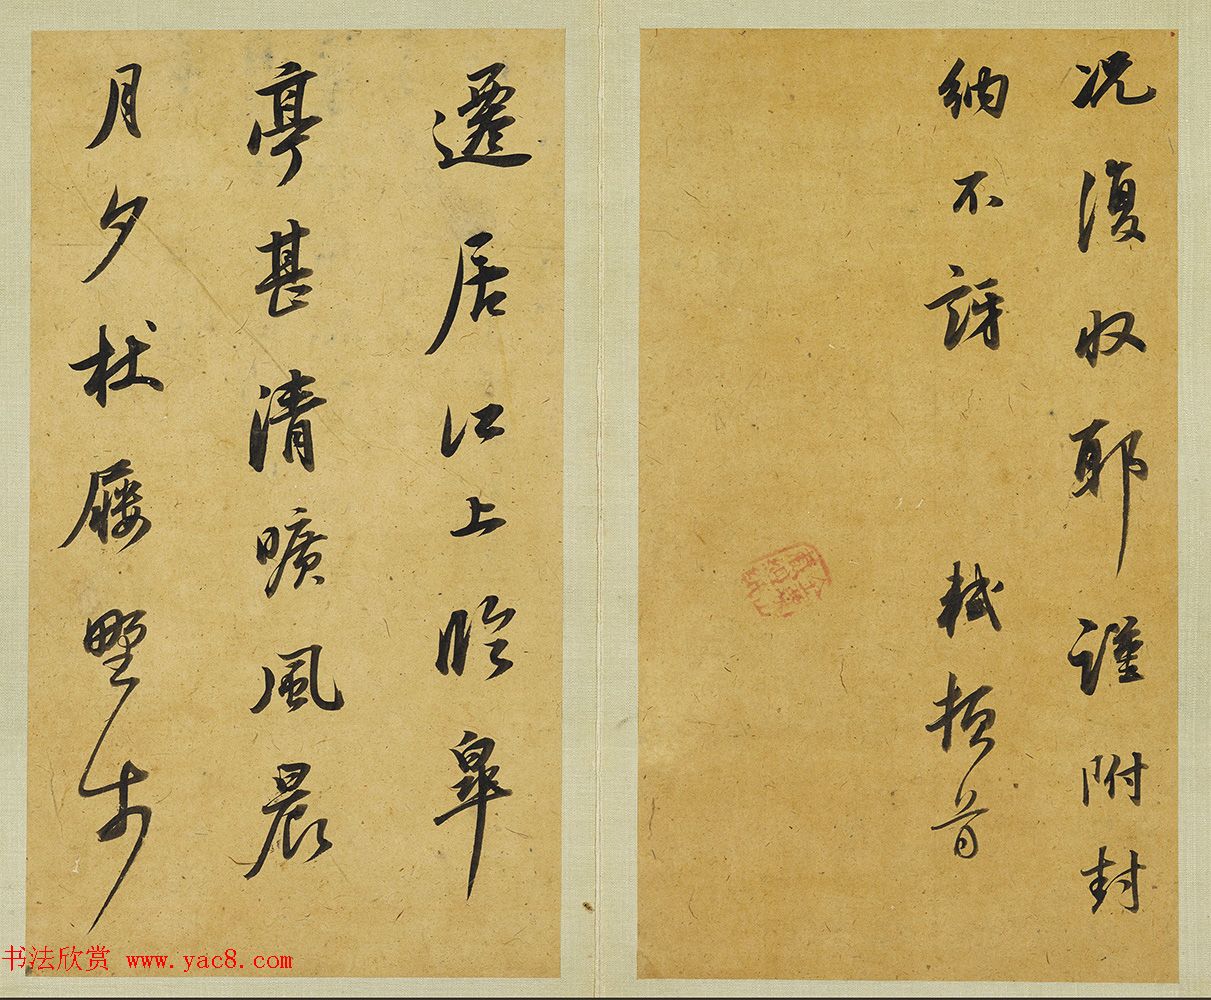 况復收耶謹附封
納不訝 軾頓首
遷居江上臨皋
亭甚清曠風晨
月夕杖屨野步
书法欣赏 www.yac8.com